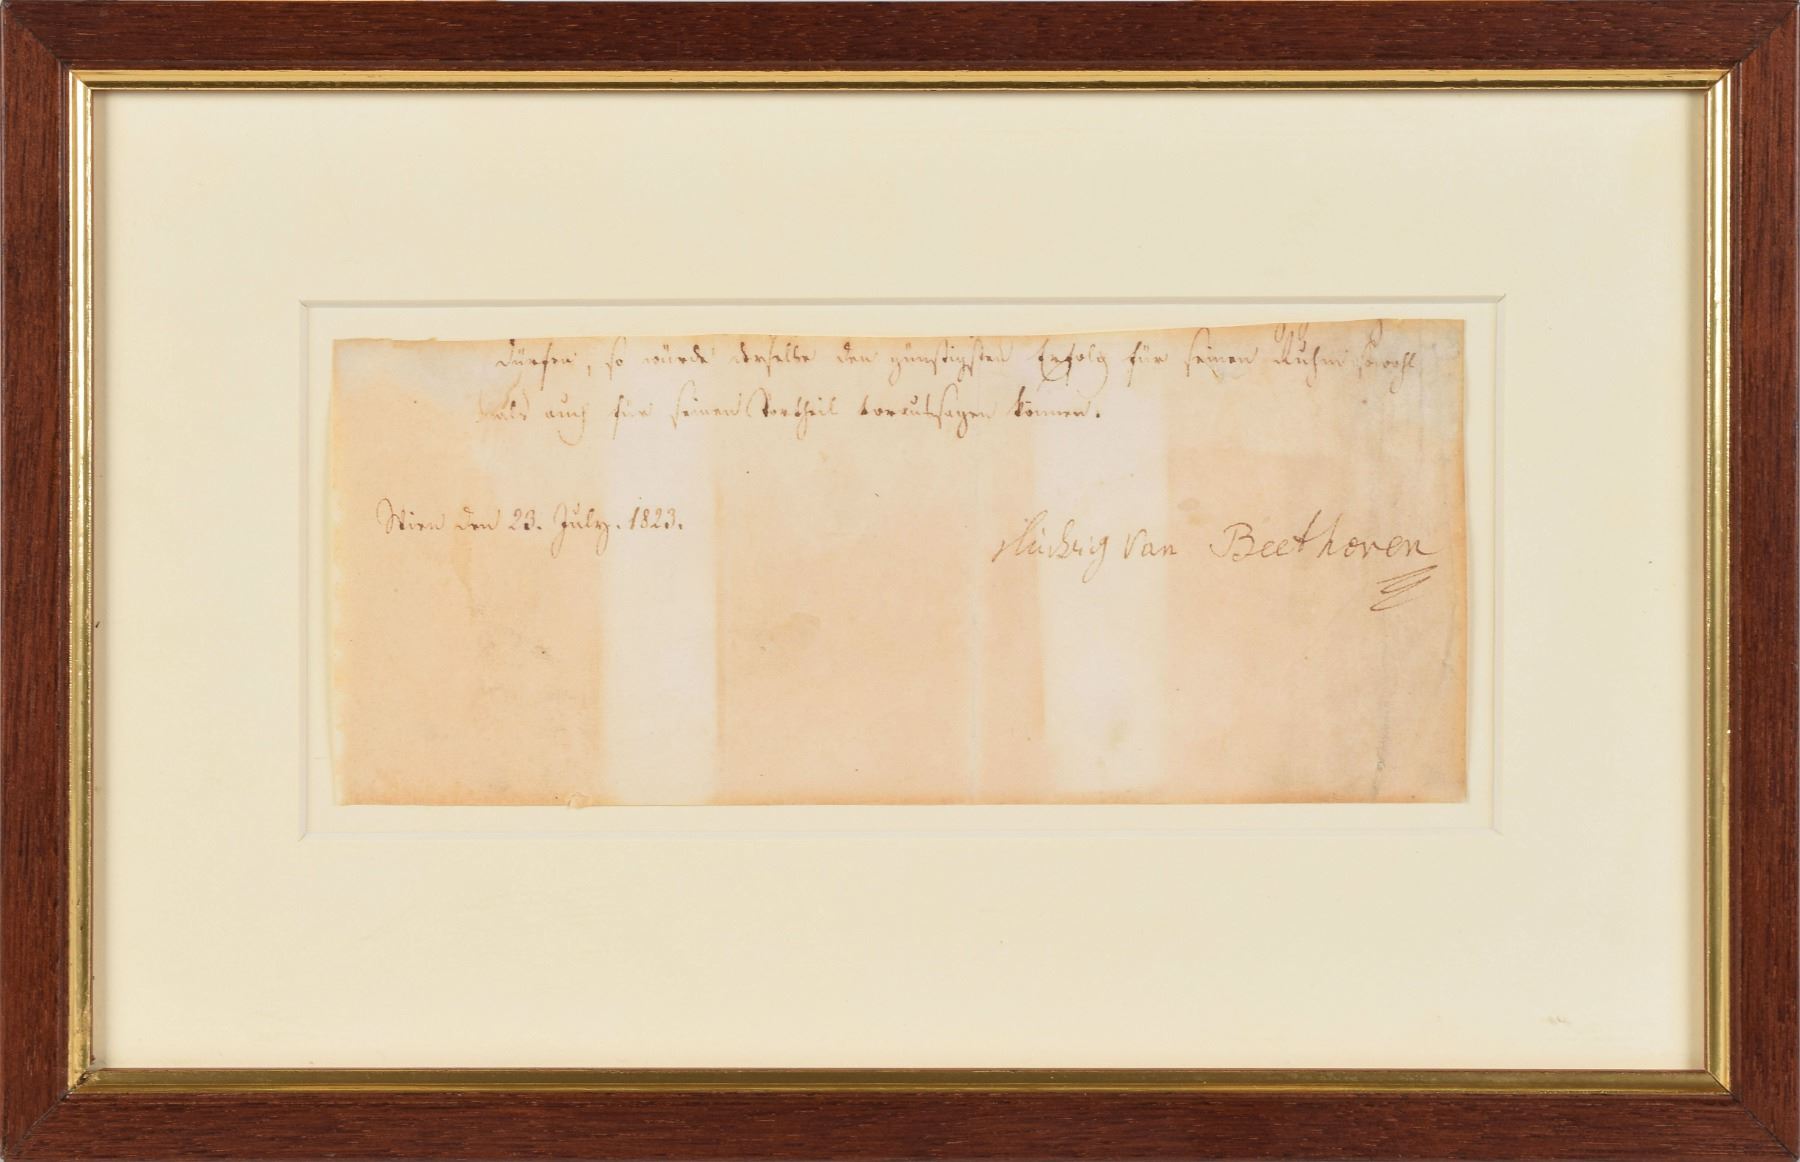 dürfen, so würde derselbe den günstigsten Erfolg für seinen Ruhm sowohl
als auch für seinen Vortheil voraussagen können.
Wien den 23. July. 1823.
Ludwig van Beethoven